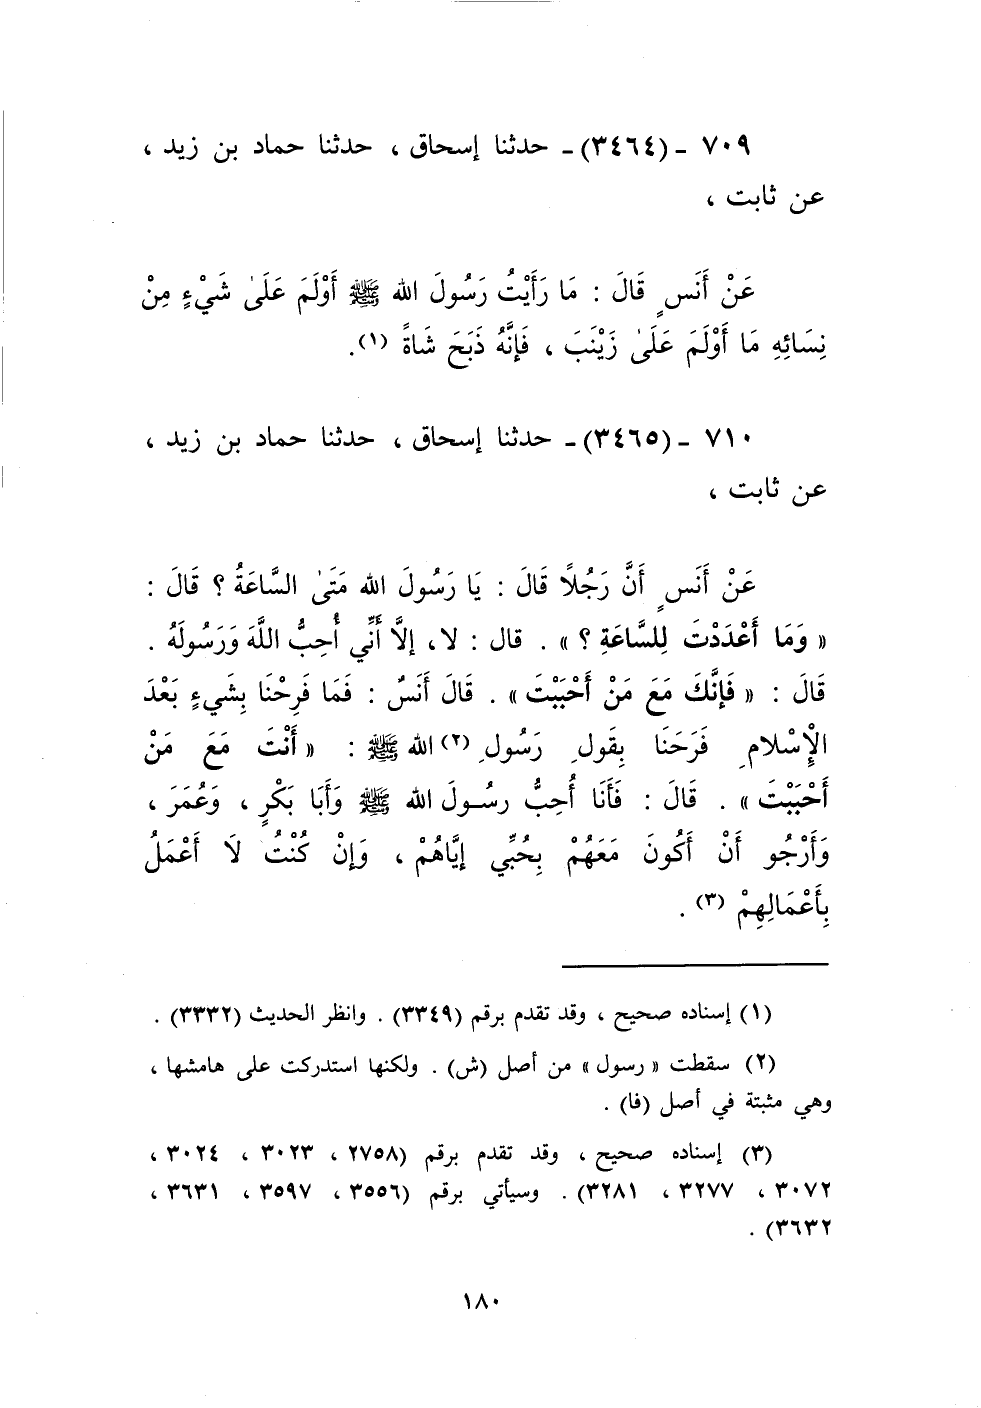 ٧٠٩ - (٣٤٦٤) - حدثنا إسحاق ، حدثنا حماد بن زيد ،
عن ثابت ،
عَنْ أَنَسٍ قَالَ : مَا رَأَيْتُ رَسُولَ الله ﷺ أَوْلَمَ عَلَىٰ شَيْءٍ مِنْ
نِسَائِهِ مَا أَوْلَمَ عَلَىٰ زَيْنَبَ ، فَإِنَّهُ ذَبَحَ شَاةً (١).
٧١٠ - (٣٤٦٥) - حدثنا إسحاق ، حدثنا حماد بن زيد ،
عن ثابت ،
عَنْ أَنَسٍ أَنَّ رَجُلاً قَالَ : يَا رَسُولَ الله مَتَىٰ السَّاعَةُ ؟ قَالَ :
« وَمَا أَعْدَدْتَ لِلسَّاعَةِ ؟ » . قال : لا، إلاَّ أَنِّي أُحِبُّ اللَّهَ وَرَسُولَهُ .
قَالَ : « فَإِنَّكَ مَعَ مَنْ أَحْبَبْتَ » . قَالَ أَنَسٌ : فَمَا فَرِحْنَا بِشَيءٍ بَعْدَ
الْإِسْلامِ فَرَحَنَا بِقَولِ رَسُولِ (٢) الله ﷺ : « أَنْتَ مَعَ مَنْ
أَحْبَبْتَ » . قَالَ : فَأَنَا أُحِبُّ رسُولَ الله ﷺ وَأَبَا بَكْرٍ ، وَعُمَرَ ،
وَأَرْجُو أَنْ أَكُونَ مَعَهُمْ بِحُبِّي إيَّاهُمْ ، وَإنْ كُنْتُ لَا أَعْمَلُ
بِأَعْمَالِهِمْ (٣) .
(١) إسناده صحيح ، وقد تقدم برقم (٣٣٤٩) . وانظر الحديث (٣٣٣٢) .
(٢) سقطت « رسول » من أصل (ش) . ولكنها استدركت على هامشها ،
وهي مثبتة في أصل (فا) .
(٣) إسناده صحيح ، وقد تقدم برقم (٢٧٥٨ ، ٣٠٢٣ ، ٣٠٢٤ ،
٣٠٧٢ ، ٣٢٧٧ ، ٣٢٨١) . وسيأتي برقم (٣٥٥٦ ، ٣٥٩٧ ، ٣٦٣١ ،
٣٦٣٢) .
١٨٠